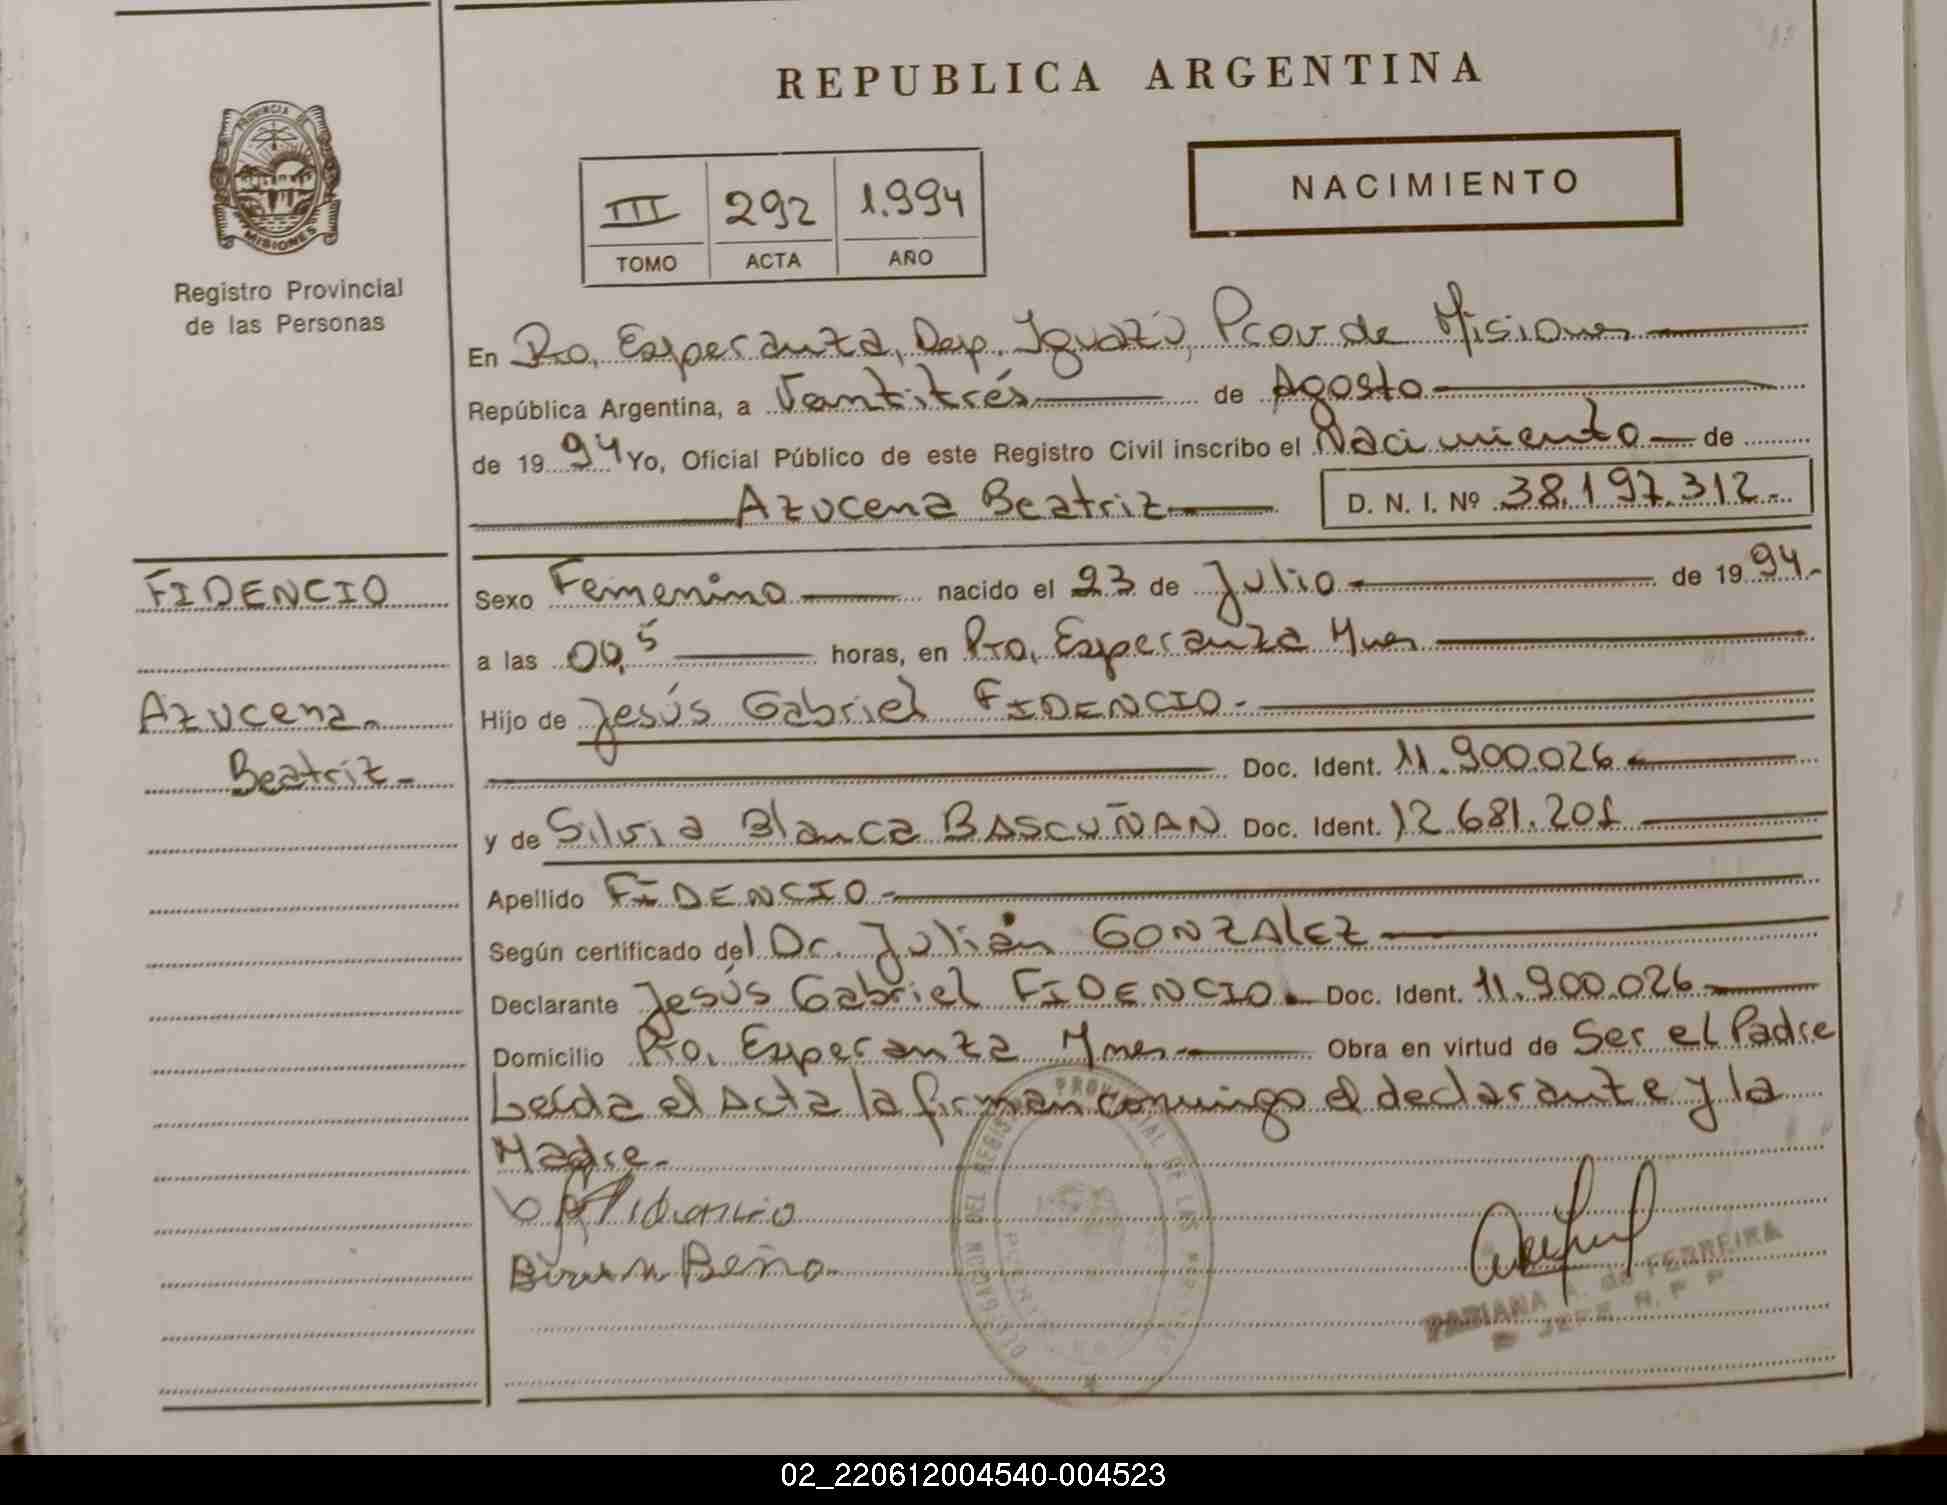 REPUBLICA ARGENTINA
PROVINCIA DE
MISIONES
Registro Provincial
de las Personas
III 292 1.994
TOMO ACTA AÑO
NACIMIENTO
En Pto. Esperanza, Dep. Iguazú, Prov de Misiones
República Argentina, a Ventitrés de Agosto
de 1994 Yo, Oficial Público de este Registro Civil inscribo el Nacimiento de
Azucena Beatriz D. N. I. Nº 38.197.312.-
FIDENCIO
Azucena
Beatriz-
Sexo Femenino nacido el 23 de Julio de 1994.-
a las 00,5 horas, en Pto, Esperanza Mnes
Hijo de Jesús Gabriel FIDENCIO.-
Doc. Ident. 11.900.026
y de Silvia Blanca BASCUÑAN Doc. Ident. 12.681.201
Apellido FIDENCIO.-
Según certificado del Dr. Julián GONZALEZ
Declarante Jesús Gabriel FIDENCIO. Doc. Ident. 11.900.026
Domicilio Pto. Esperanza Mnes.- Obra en virtud de Ser el Padre
Leída el Acta la firman conmigo el declarante y la
Madre.-
DEL REGISTRO PROVINCIAL DE LAS
FABIANA A. de FERREIRA
JEFE R. P. P.
02_220612004540-004523